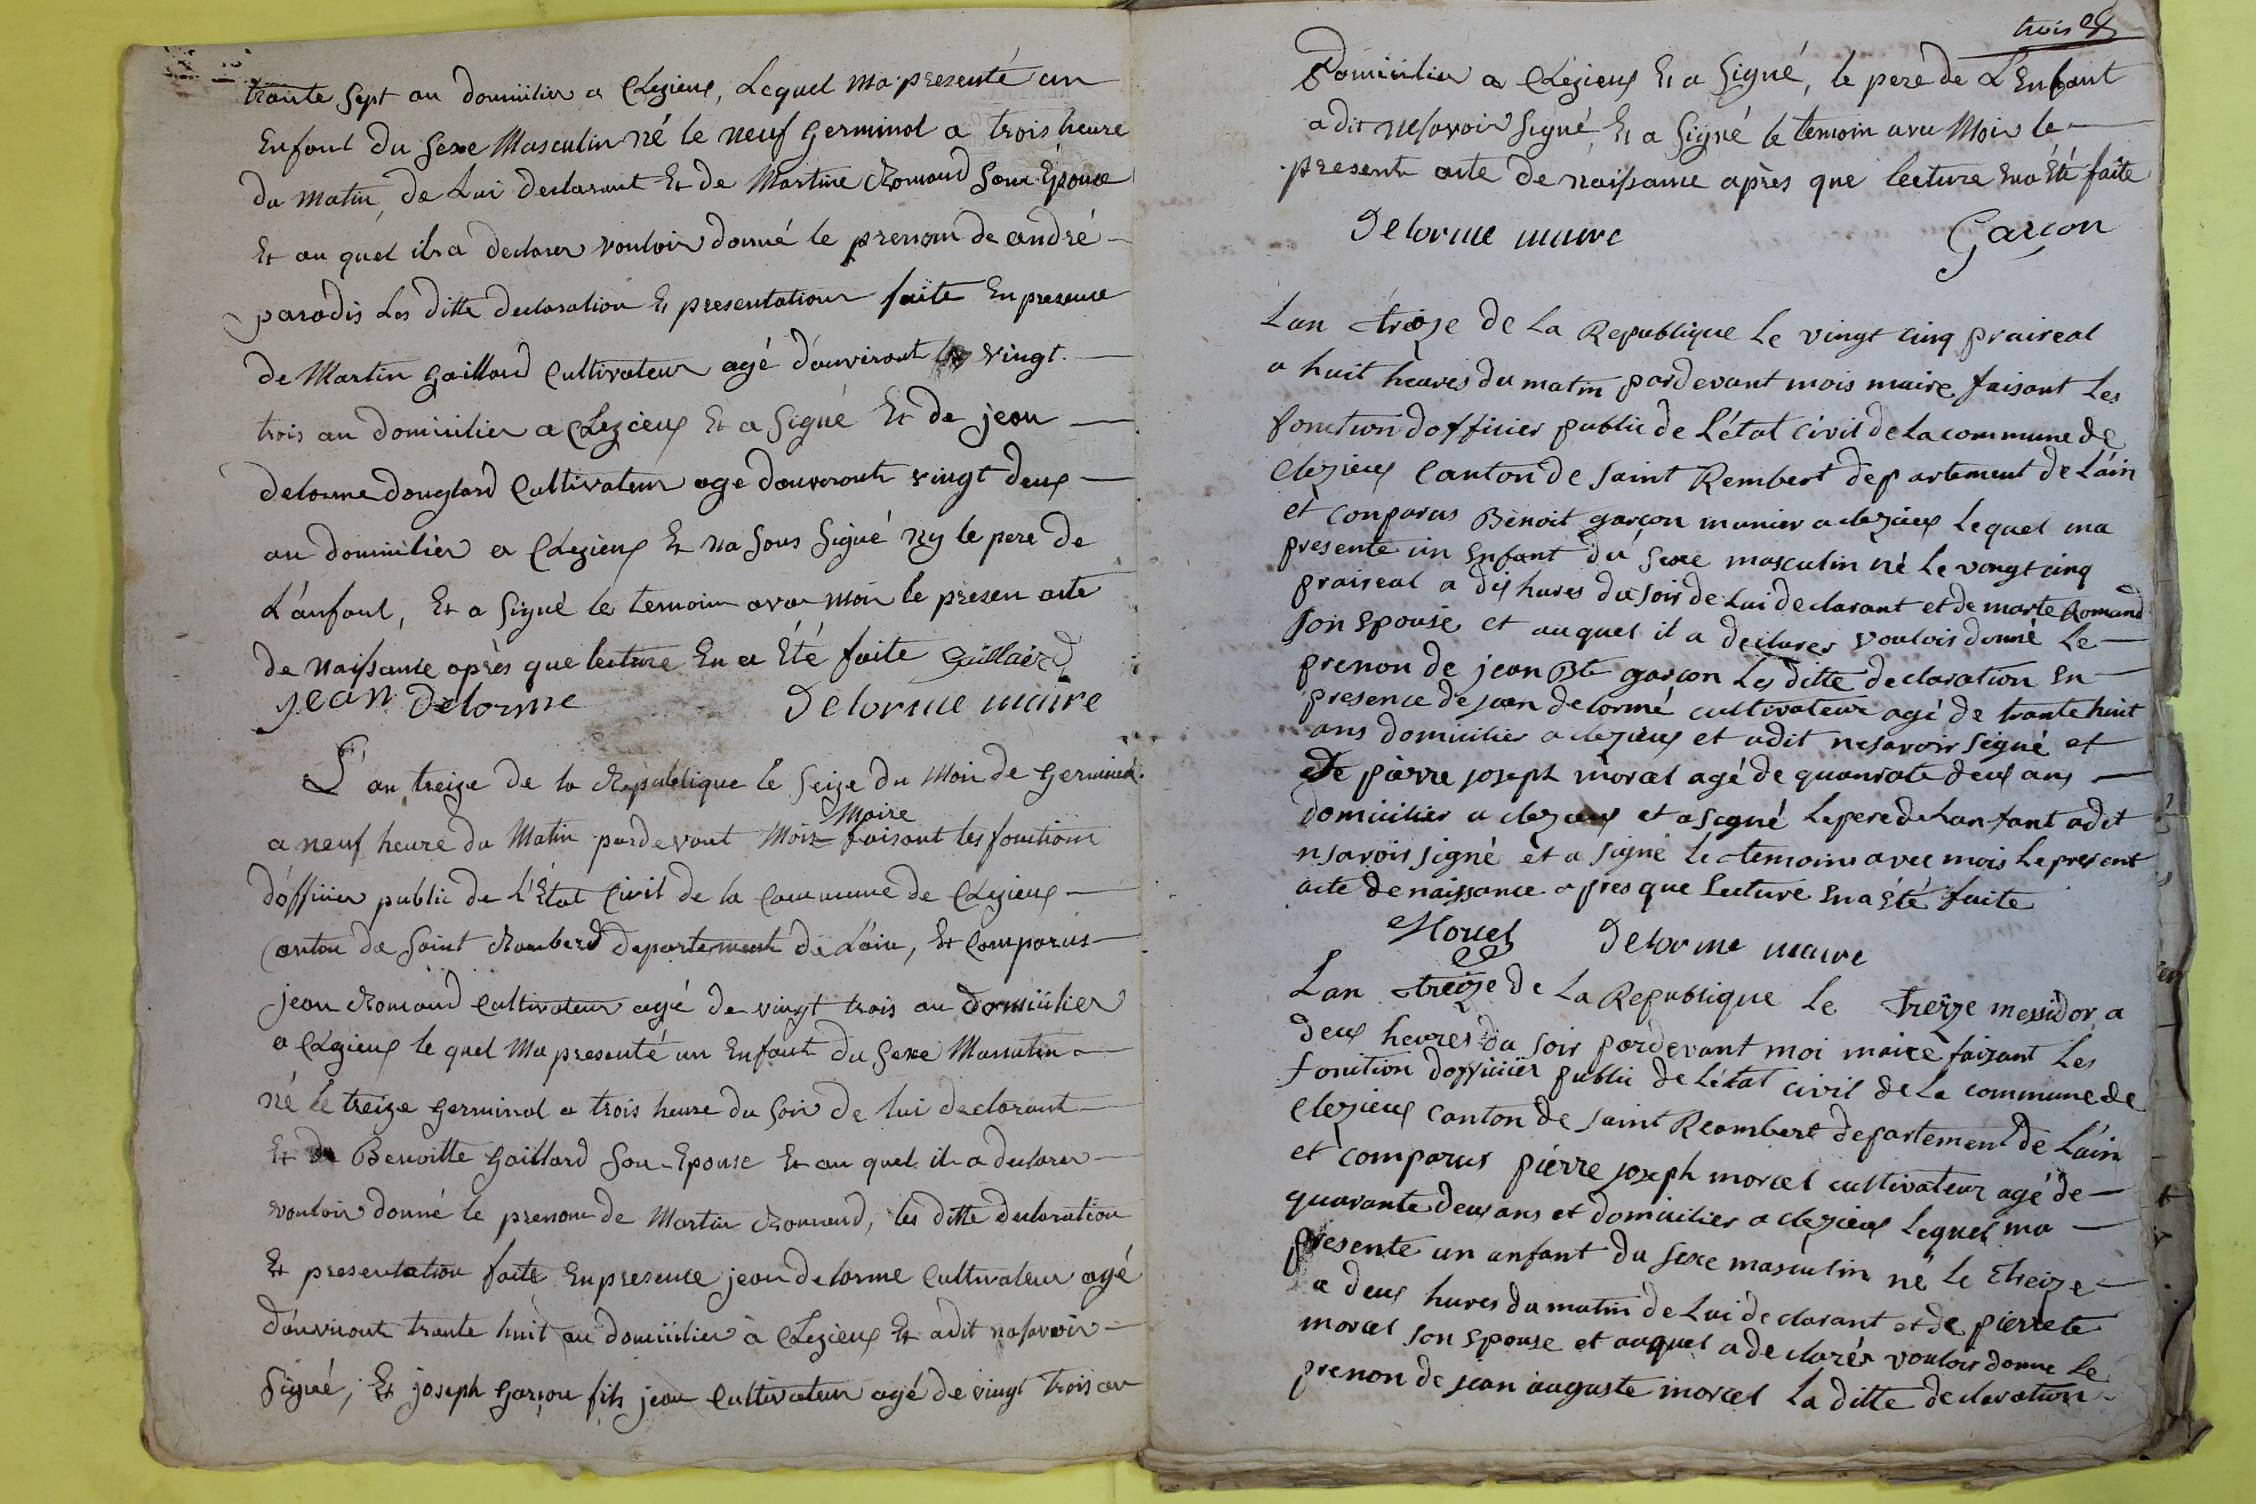 trante sept an domiiilier a Clezieux, Lequel Ma presenté un
Enfant du Sexe Masculin né le neuf Germinal a trois heure
du Matin, de Lui declarant Et de Martine Romand Son Épouse
Et au quel il a declarer vouloir donné le prenom de andré
paradis Les ditte declaration Et presentation faite En presence
de Martin Gaillard Cultivateur agé d'auviront vingt
trois an domiiilier a Clezieux Et a Signé Et de jean
delorme douglard Cultivateur age dauviront vingt deux
an domiiilier a Clezieux Et na Sous Signé ny le pere de
L'anfant, Et a Signé le temoin avec moi le presen acte
de Naissance après que lecture En a Été faite Gaillard
jean Delorme Delorme maire
L'an treize de la République le Seize du Moi de Germinal
Maire
a neuf heure du Matin pardevant Moi faisant les fonctions
d'officier public de L'État Civil de la Commune de Clezieux
Canton de Saint Rambert departement de L'ain, Et Comparus
jean Romand Cultivateur agé de vingt trois an domiiilier
a Clezieux le quel Ma presenté un Enfant du Sexe Masculin
né le treize Germinal a trois heure du Soir de lui declarant
Et de Benoitte Gaillard Son Epouse Et au quel il a declarer
vouloir donné le prenom de Martin Romand, les ditte declaration
Et presentation faite En presence jean delorme Cultivateur agé
d'auviront trante huit an domiiilier à Clezieux Et a dit na savoir
Signé, Et joseph Garçon fils jean Cultivateur agé de vingt trois an
trois
Domiiilier a Clezieux Et a Signé, le pere de L'Enfant
a dit ne savoir Signé Et a Signé le temoin avec Moi le
present acte de naissance après que lecture En a Été faite
Delorme maire Garçon
Lan treize de La Republique Le vingt cinq praireal
a huit heures du matin pardevant mois maire faisant Les
fonction dofficier public de L'état civil de La commune de
Clezieux Canton de Saint Rembert departement de L'ain
et conparus Benoit garçon munier a clezieux Lequel ma
presente un Enfant du Sexe masculin né Le vongt cinq
praireal a dix hures du soir de Lui declarant et de marte Romand
Son Epouse et auquel il a declarer vouloir donné Le
prenon de jean Bte garçon Les ditte declaration En
presence de jean delormé cultivateur agé de trante huit
ans domiiilier a clezieux et adit ne savoir Signé et
De pierre joseph morel agé de quanrate deux ans
domiiilier a clezieux et a Segné Le pere de Lanfant adit
nsavoir signé et a signé Le temoins avec mois Le present
acte de naissance apres que Lecture En a Été faite
Morel Delorme maire
Lan treize de La Republique Le treize messidor a
deux heures du soir pardevant moi maire faisant Les
fonction dofficiier public de L'état civil de La commune de
Clezieux canton de saint Reambert departement de L'ain
et comparus pierre joseph morel cultivateur agé de
quarante deux ans et domiiilier a clezieux Lequel ma
presente un anfant du Sexe masculin né Le treize
a deux hures du matin de Lui declarant et de pierrete
morel son Epouse et auquel a declarér vouloir donne Le
prenon de jean auguste morel La ditte declaration